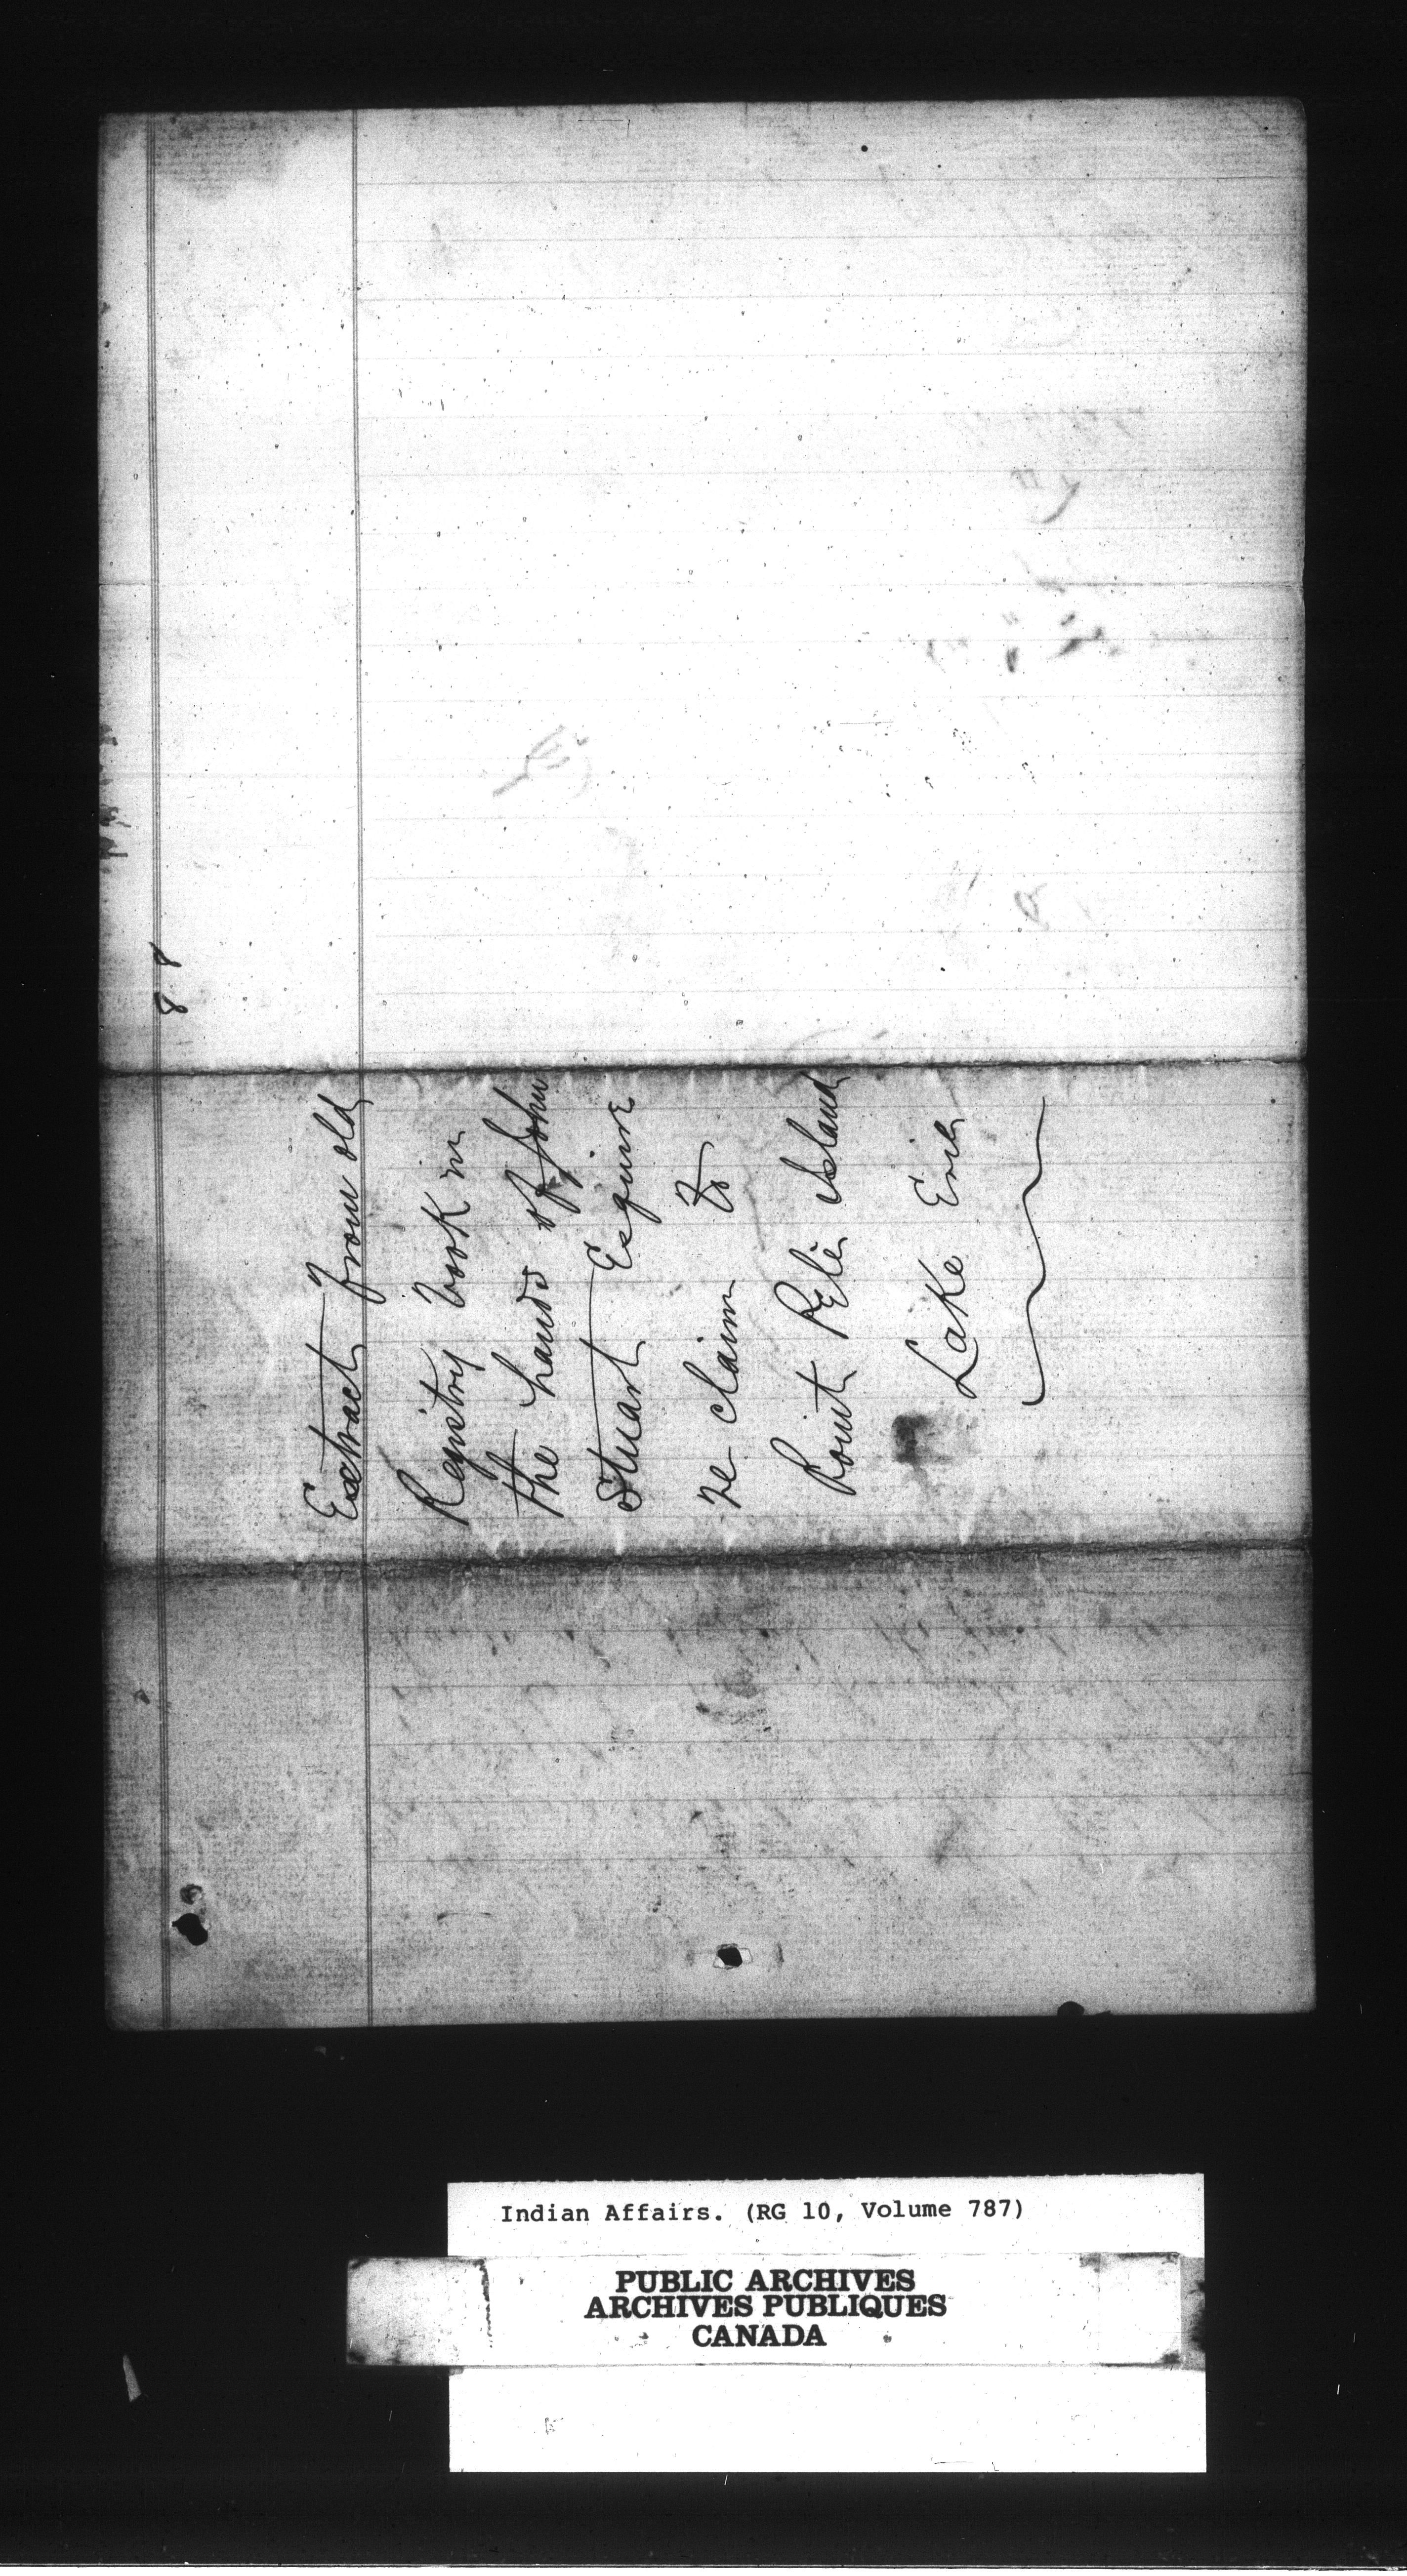 88
Extract from old
Registry book in
the hands of John
Stuart Esquire
re claim to
Point Pelé Island
Lake Erie
Indian Affairs. (RG 10, Volume 787)
PUBLIC ARCHIVES
ARCHIVES PUBLIQUES
CANADA